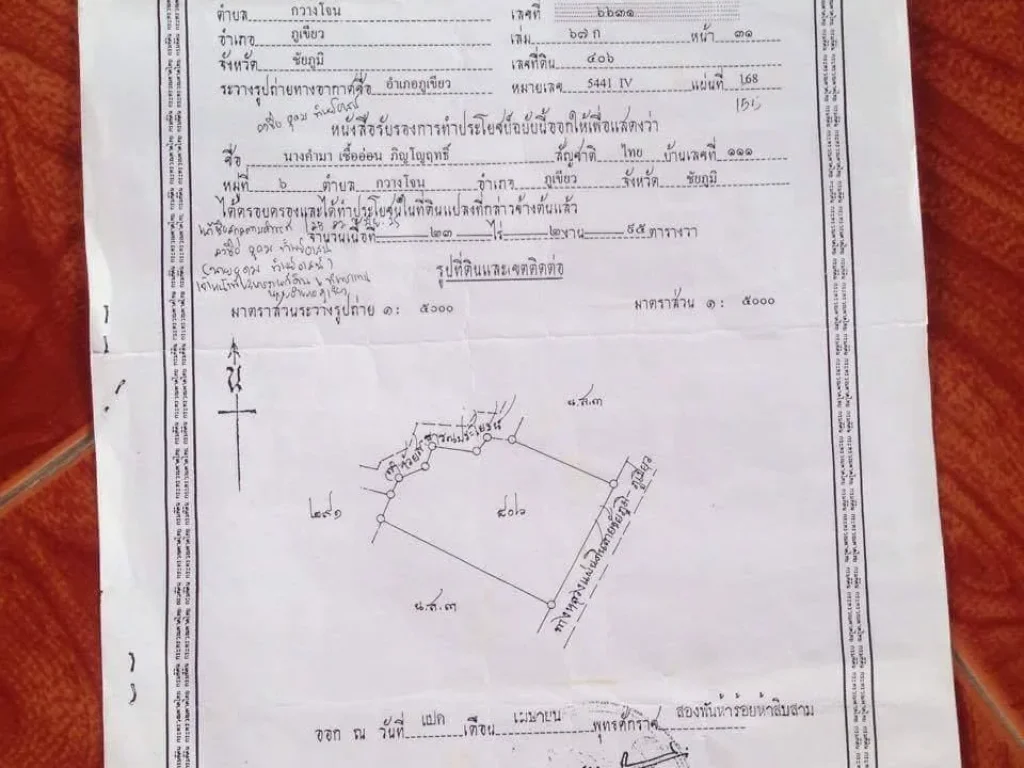 ตำบล กวางโจน เลขที่ ๖๖๓๑
อำเภอ ภูเขียว เล่ม ๖๗ ก หน้า ๓๑
จังหวัด ชัยภูมิ เลขที่ดิน ๔๐๖
ระวางรูปถ่ายทางอากาศชื่อ อำเภอภูเขียว หมายเลข 5441 IV แผ่นที่ 168
155
หนังสือรับรองการทำประโยชน์ฉบับนี้ออกให้เพื่อแสดงว่า
ชื่อ นางคำมา เชื้ออ่อน ภิญโญฤทธิ์ สัญชาติ ไทย บ้านเลขที่ ๑๑๑
หมู่ที่ ๖ ตำบล กวางโจน อำเภอ ภูเขียว จังหวัด ชัยภูมิ
ได้ครอบครองและได้ทำประโยชน์ในที่ดินแปลงที่กล่าวข้างต้นแล้ว
จำนวนเนื้อที่ ๒๓ ไร่ ๒ งาน ๙๕ ตารางวา
รูปที่ดินและเขตติดต่อ
มาตราส่วนระวางรูปถ่าย ๑ : ๕๐๐๐ มาตราส่วน ๑ : ๕๐๐๐
น
น.ส.๓
ห้วย สาธารณประโยชน์
๒๙๑
๔๐๖
ทางหลวงแผ่นดินสายชัยภูมิ - ภูเขียว
น.ส.๓
ออก ณ วันที่ แปด เดือน เมษายน พุทธศักราช สองพันห้าร้อยห้าสิบสาม